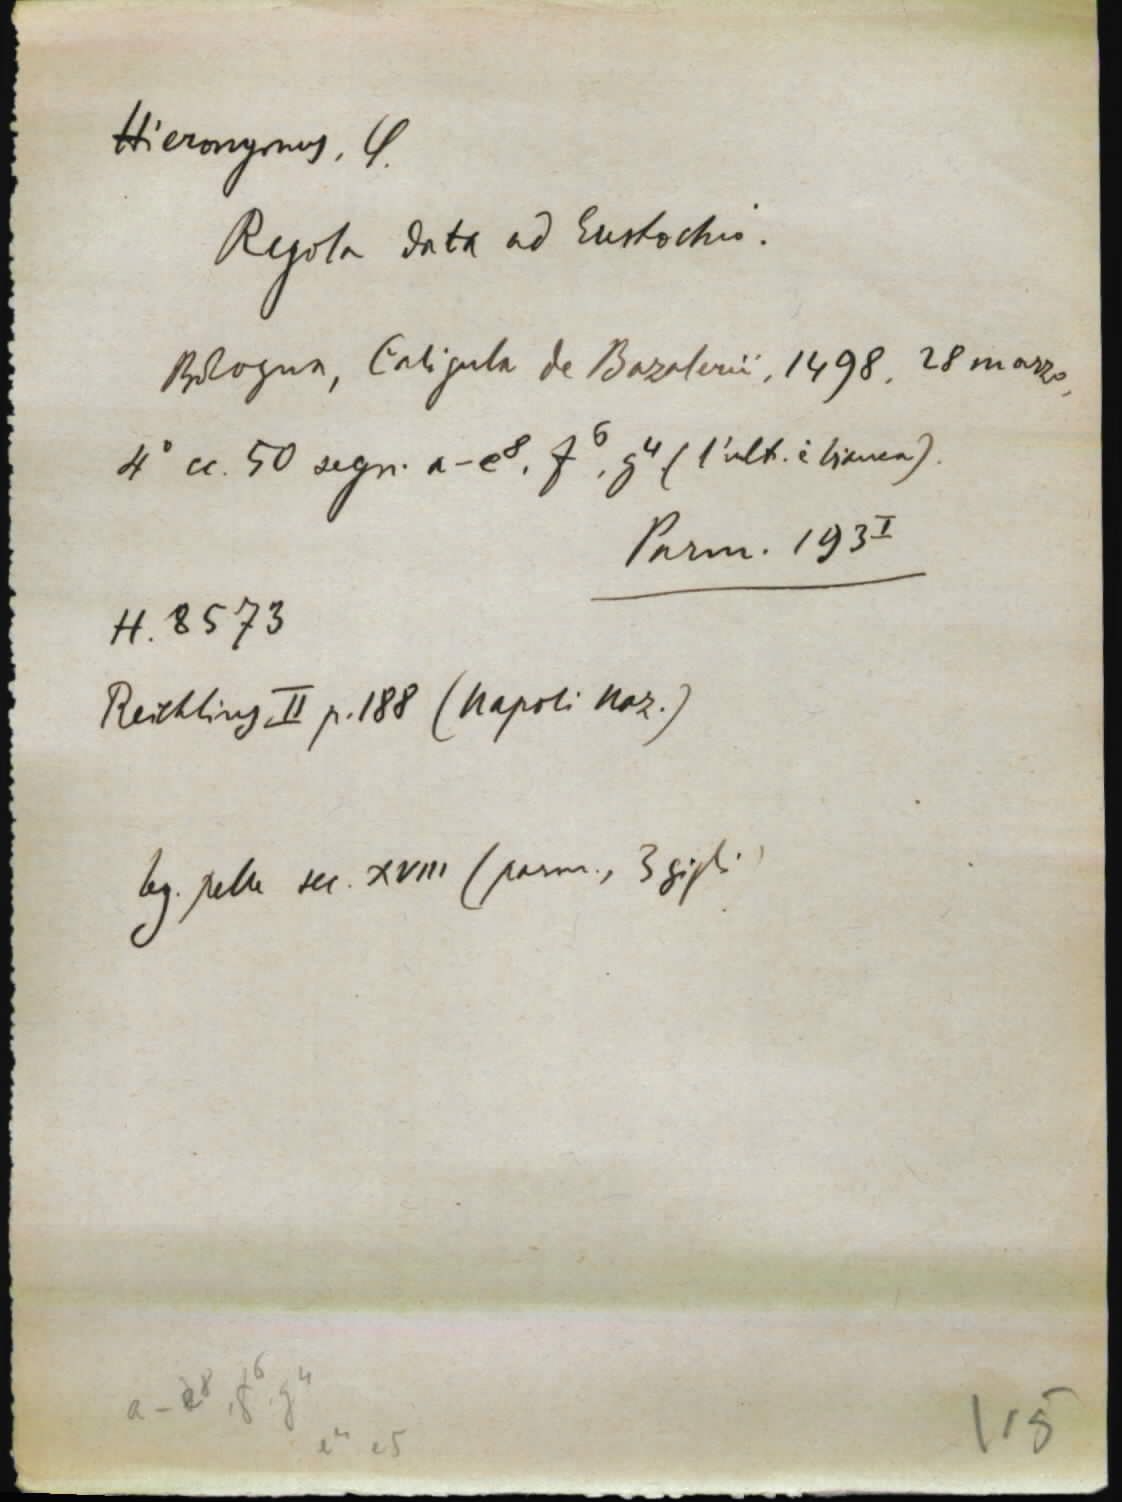 Hieronymus, S.
Regola data ad Eustochio.
Bologna, Caligula de Bazalerii, 1498, 28 marzo,
4° cc. 50 segn. a-e⁸, f⁶, g⁴ (l'ult. è bianca).
Parm. 193ᴵ
H. 8573
Reichling, II p. 188 (Napoli Naz.)
leg. pelle sec. XVIII (parm., 3 gigli)
a-e⁸, f⁶, g⁴
e5
115